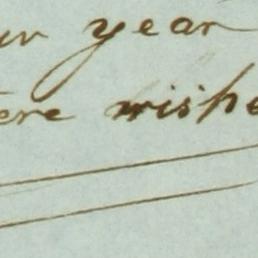 ur year
ere wishe